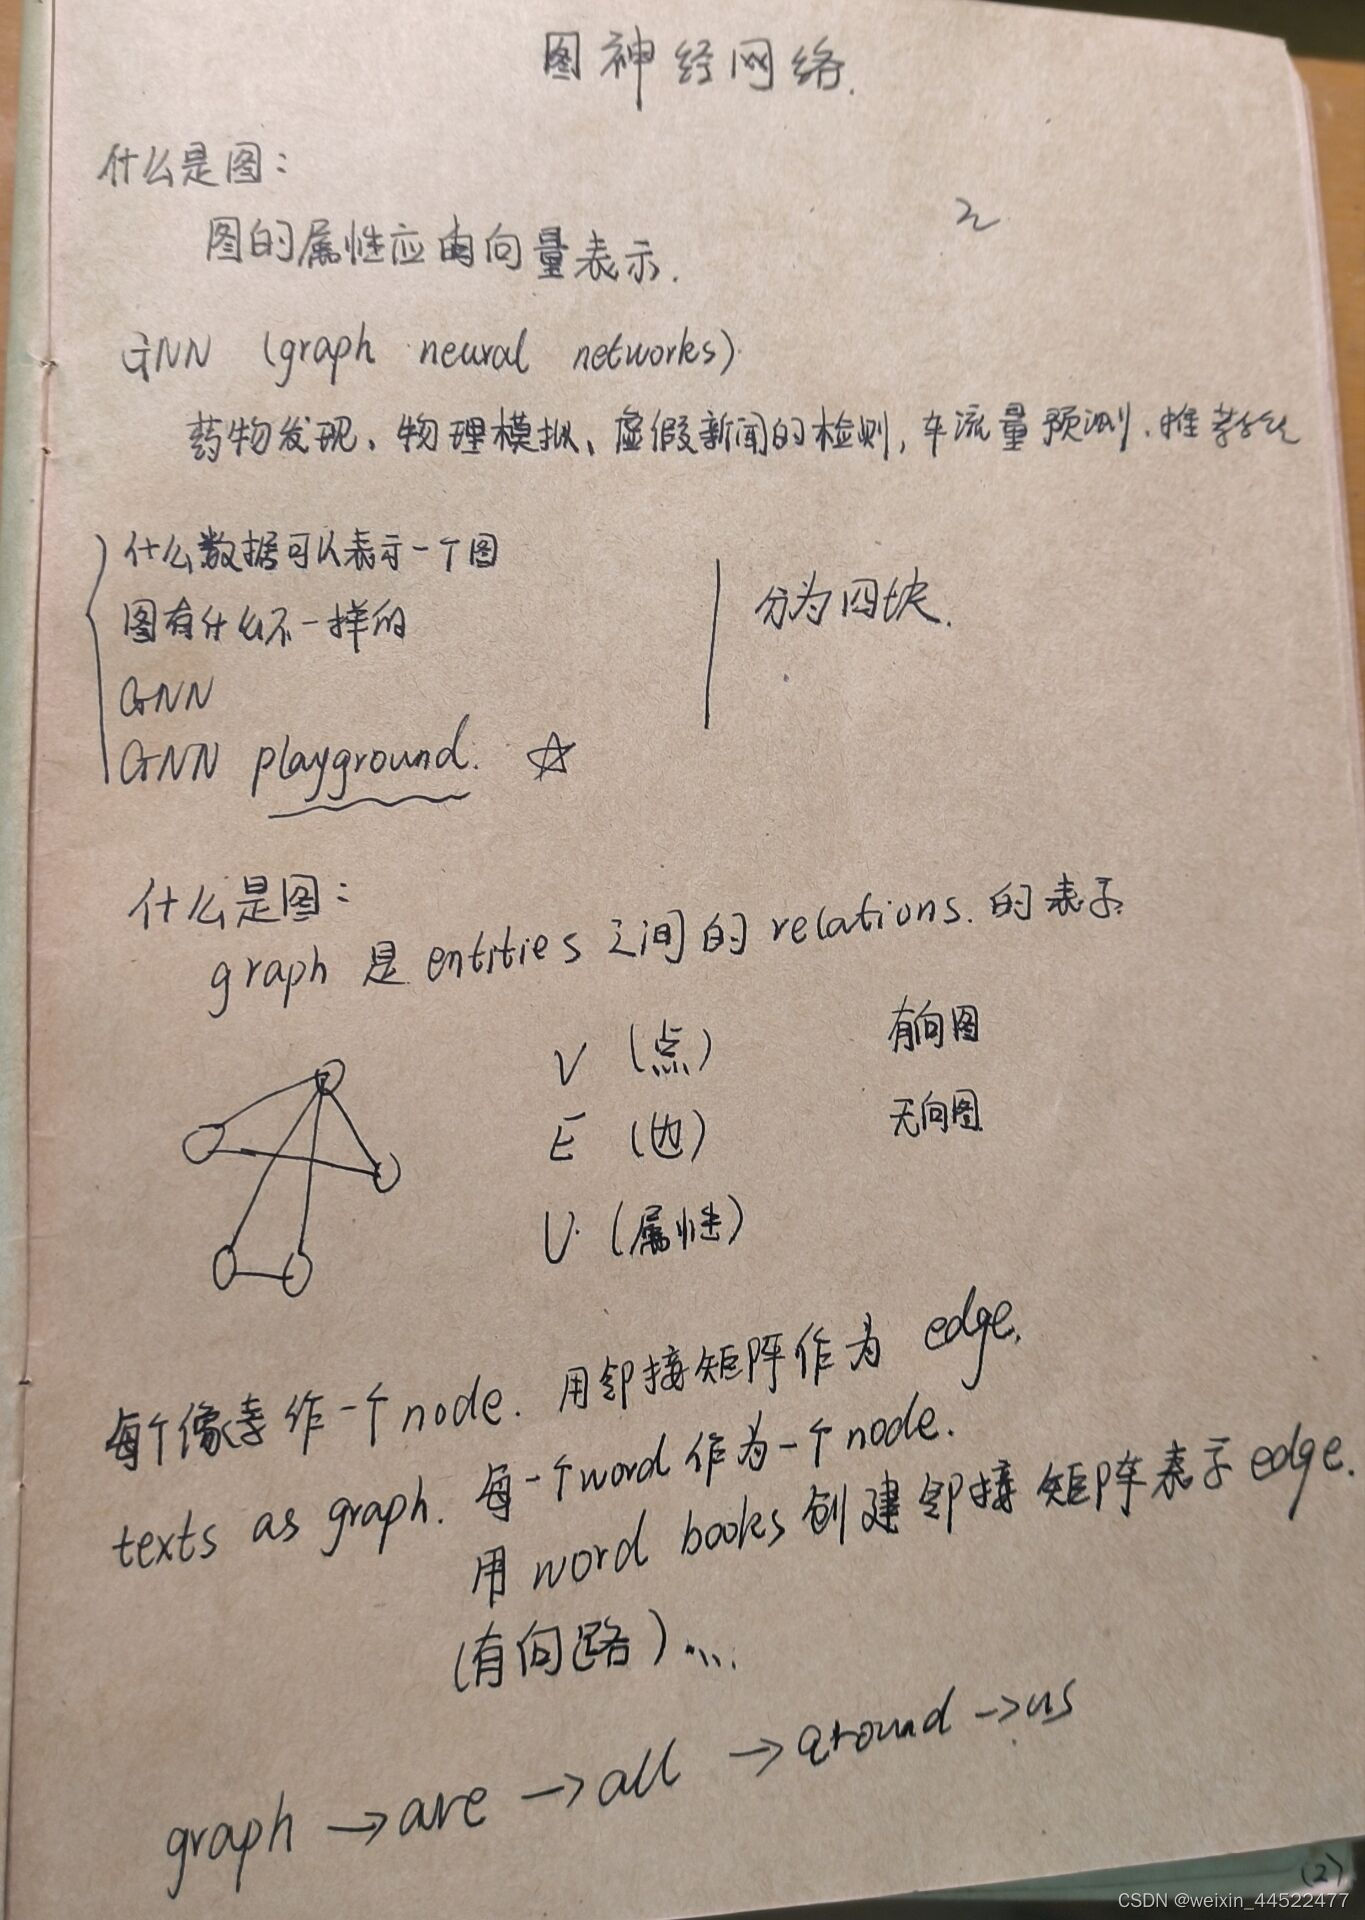 图神经网络.
什么是图：
图的属性应由向量表示.
GNN (graph neural networks)
药物发现、物理模拟、虚假新闻的检测, 车流量预测、推荐
什么数据可以表示一个图
图有什么不一样的
GNN
GNN playground. ☆
分为四块.
什么是图：
graph 是 entities 之间的 relations. 的表示
V (点) 有向图
E (边) 无向图
U. (属性)
每个像素作一个node. 用邻接矩阵作为 edge.
texts as graph. 每一个word作为一个node.
用 word books 创建邻接矩阵表示edge.
(有向路)...
graph →are →all →around →us
(2)
CSDN @weixin_44522477